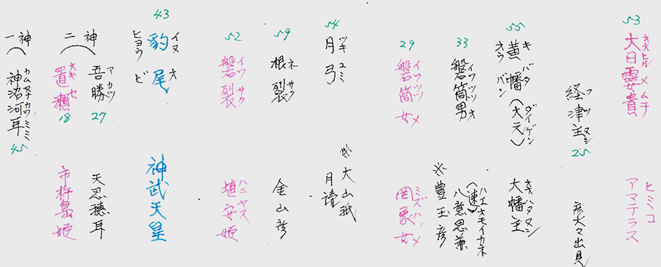 53
大日孁貴
オオヒル メムチ
ヒミコ
アマテラス
経津主
フツヌシ
25
彦火々出見
55
黄幡(大元)
キバタ
ダイゲン
オウバン
大幡主
オオハタヌシ
33
磐筒男
イワツツオ
八意思兼
(速)
ハエオモイカネ
※豊玉彦
29
磐筒女
イワツツメ
罔象女
ミズハノメ
54
月弓
ツキユミ
※大山祇
月讀
59
根裂
ネサク
金山彦
52
磐裂
イワサク
埴安姫
ハニヤス
43
豹尾
イヌオ
ヒョウビ
神武天皇
二神
吾勝
アカツ
27
天忍穂耳
置瀬
オキセ
18
市杵島姫
一神
神沼河耳
カムヌナカワミミ
45